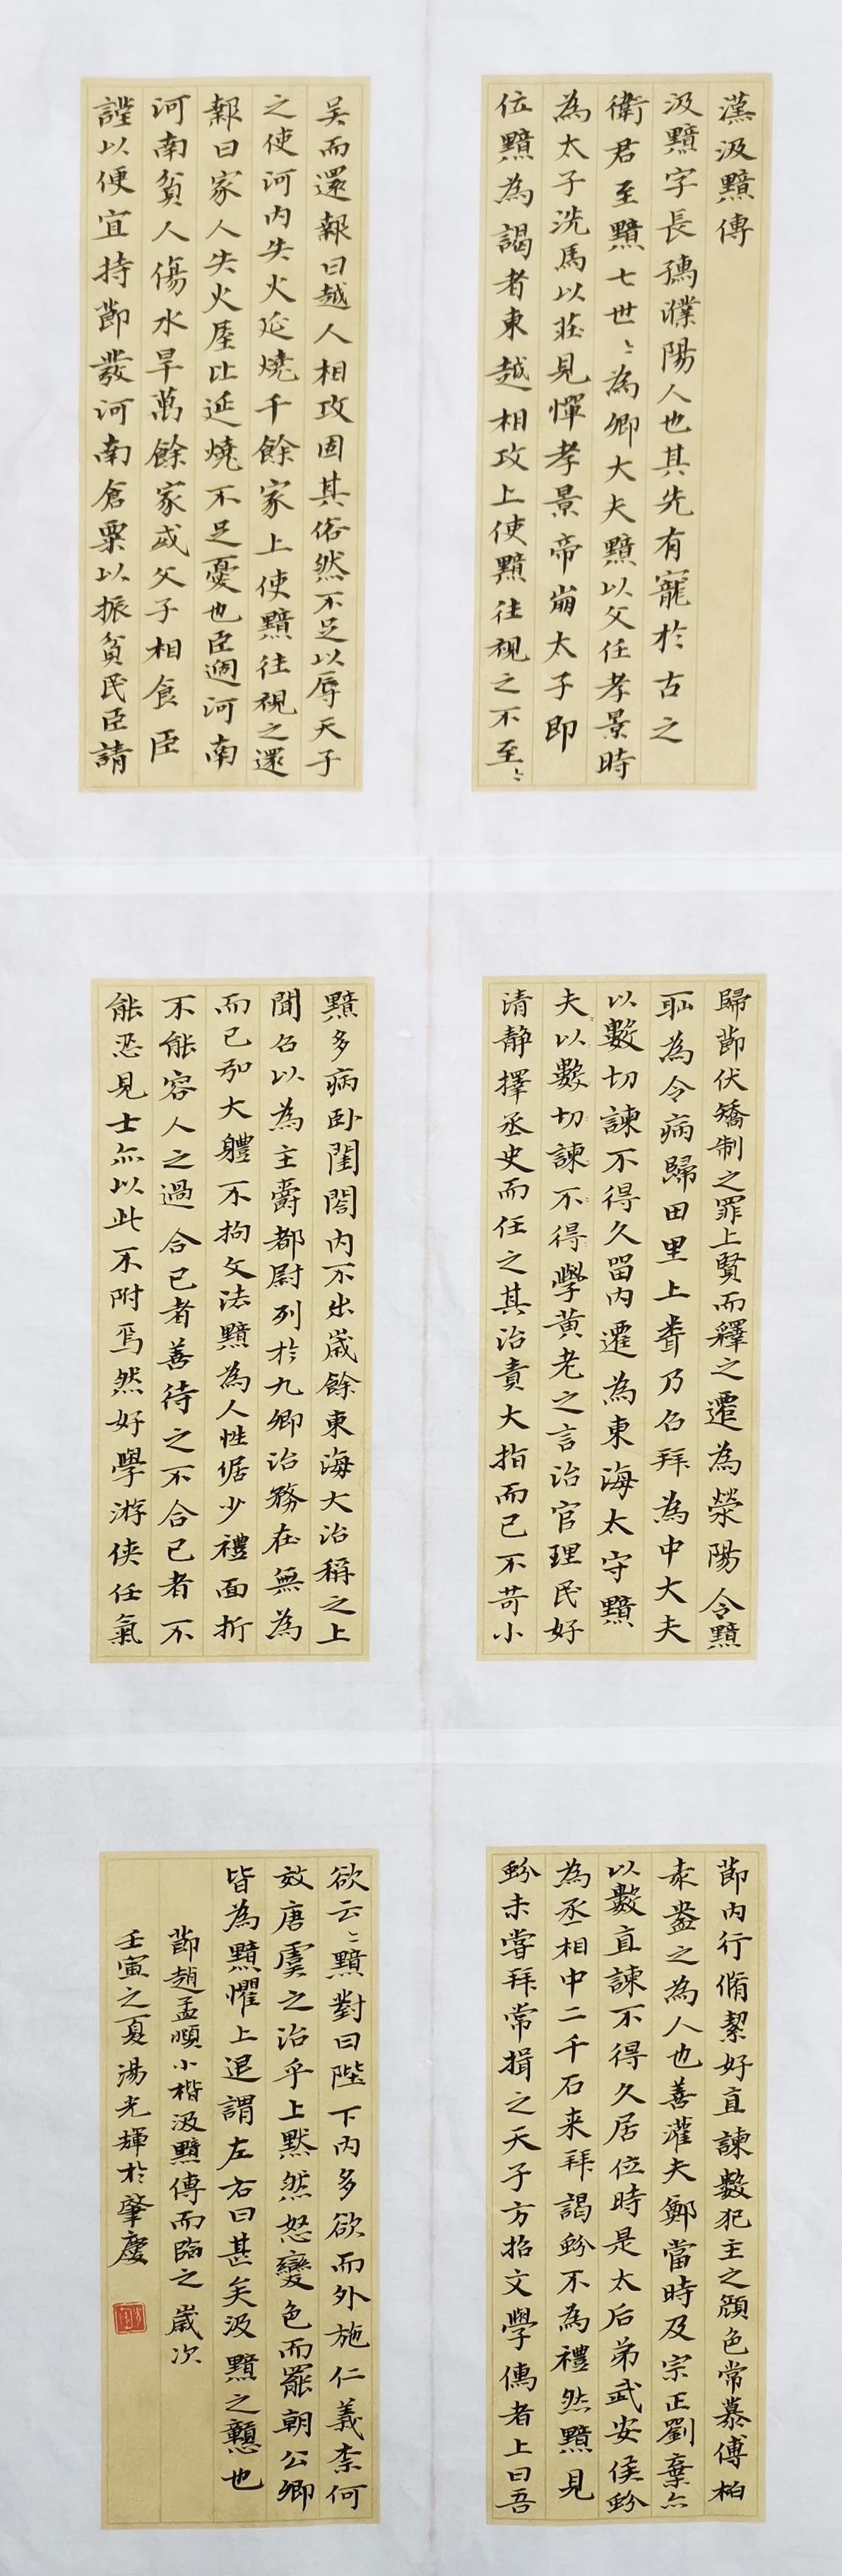 漢汲黯傳
汲黯字長孺濮陽人也其先有寵於古之
衛君至黯七世〻為卿大夫黯以父任孝景時
為太子洗馬以莊見憚孝景帝崩太子即
位黯為謁者東越相攻上使黯往視之不至〻
吴而還報曰越人相攻固其俗然不足以辱天子
之使河内失火延燒千餘家上使黯往視之還
報曰家人失火屋比延燒不足憂也臣過河南
河南貧人傷水旱萬餘家或父子相食臣
謹以便宜持節發河南倉粟以振貧民臣請
歸節伏矯制之罪上賢而釋之遷為滎陽令黯
耻為令病歸田里上聞乃召拜為中大夫
以數切諫不得久留内遷為東海太守黯
夫以數切諫不得學黄老之言治官理民好
清静擇丞史而任之其治責大指而已不苛小
黯多病卧閨閤内不出歲餘東海大治稱之上
聞召以為主爵都尉列於九卿治務在無為
而已引大體不拘文法黯為人性倨少禮面折
不能容人之過合己者善待之不合己者不
能忍見士亦以此不附焉然好學游俠任氣
節内行脩絜好直諫數犯主之顔色常慕傅柏
袁盎之為人也善灌夫鄭當時及宗正劉棄亦
以數直諫不得久居位時是太后弟武安侯蚡
為丞相中二千石来拜謁蚡不為禮然黯見
蚡未嘗拜常揖之天子方招文學儒者上曰吾
欲云〻黯對曰陛下内多欲而外施仁義柰何
效唐虞之治乎上默然怒變色而罷朝公卿
皆為黯懼上退謂左右曰甚矣汲黯之戇也
節趙孟頫小楷汲黯傳而臨之歲次
壬寅之夏湯光輝於肇慶